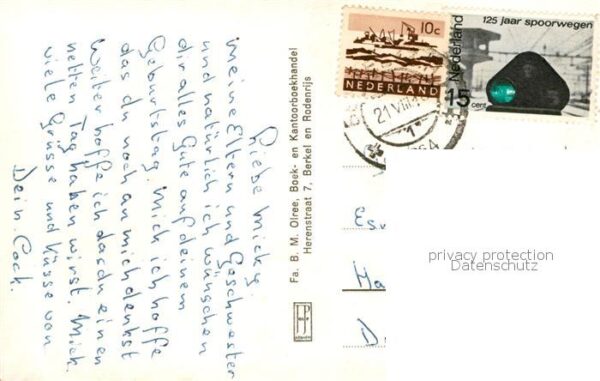 Liebe Micky.
meine Eltern und Geschwester
und natürlich ich wünschen
dir alles Gute auf deinem
Geburtstag. Mich ich hoffe
das du noch an mich denkst
Weiter hoffe ich das du einen
netten Tag haben wirst. Mich.
viele Grüsse und Küsse von
Dein. Cock.
Fa. B. M. Olree, Boek- en Kantoorboekhandel
Herenstraat 7, Berkel en Rodenrijs
10c
NEDERLAND
125 jaar spoorwegen
Nederland
15
cent
21 VIII
1
Es
Ha
D
privacy protection
Datenschutz